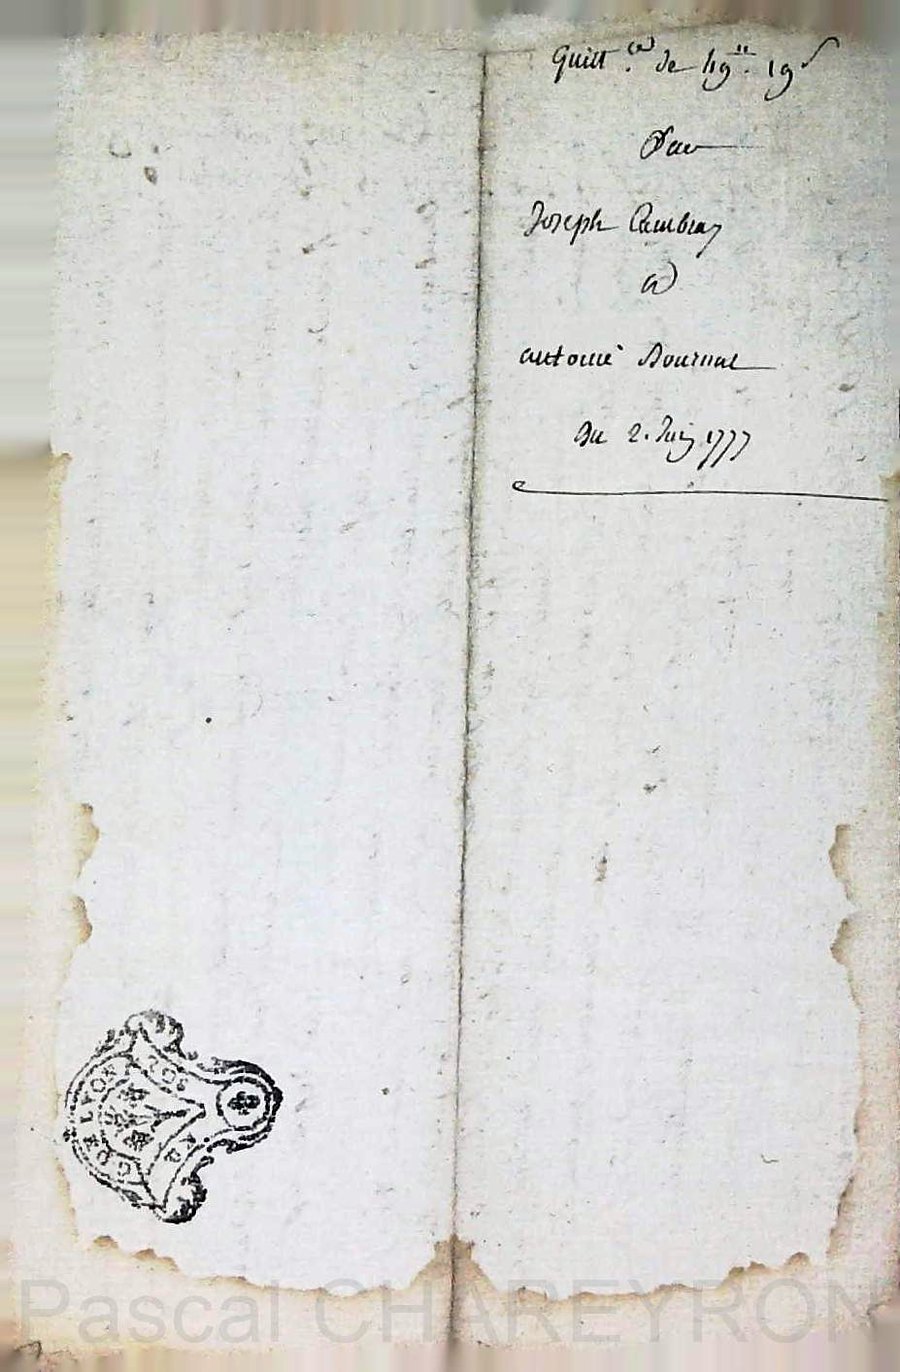 Quitt.ce de 49ll. 19s
Par
Joseph Cambray
a
antoine Dournat
Du 2. Juin 1777
GEN LYON
SOLS
Pascal CHAREYRON